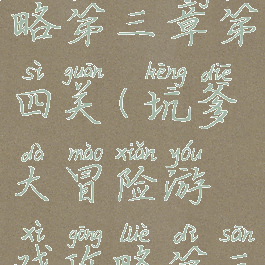 略第三章第
sì guān kēng diē
四关(坑爹
dà mào xiǎn yóu
大冒险游
xì gōng lüè dì sān
戏攻略第三